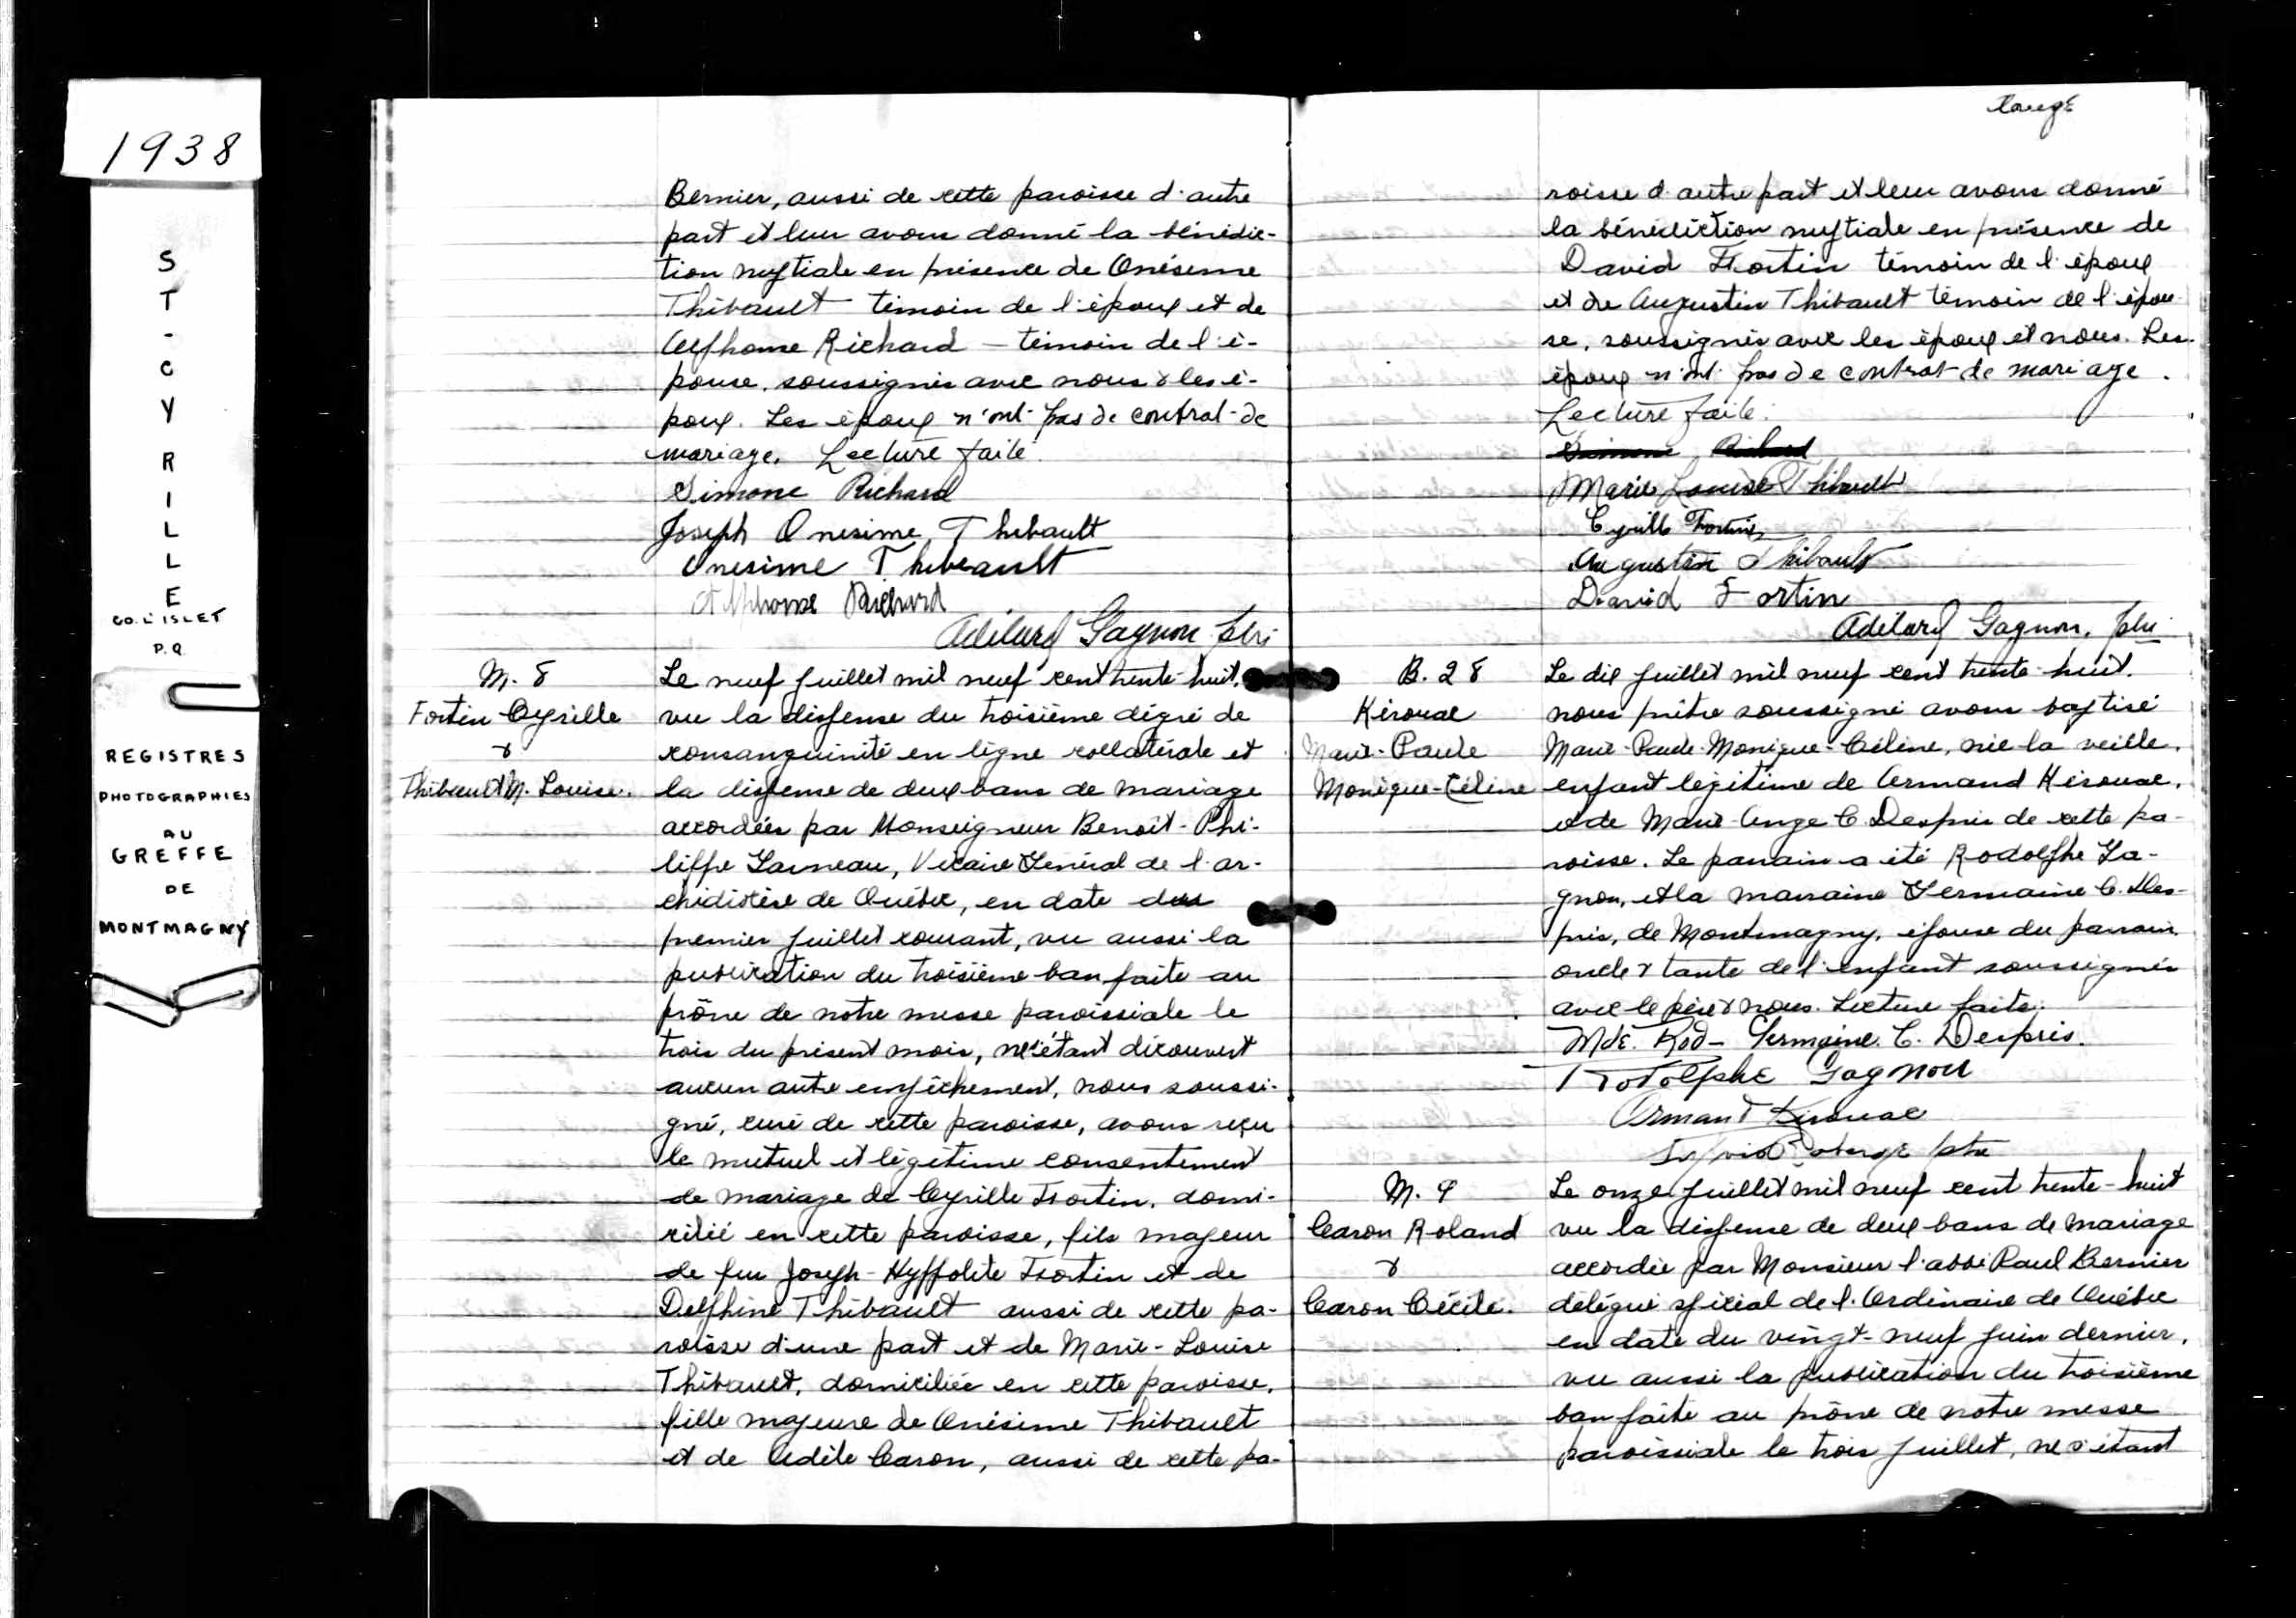 1938
S
T
-
C
Y
R
I
L
L
E
CO. L'ISLET
P.Q.
REGISTRES
PHOTOGRAPHIES
AU
GREFFE
DE
MONTMAGNY
Bernier, aussi de cette paroisse d'autre
part et leur avons donné la bénédic-
tion nuptiale en présence de Onésime
Thibault témoin de l'époux et de
Alphonse Richard - témoin de l'é-
pouse, soussignés avec nous & les é-
poux. Les époux n'ont pas de contrat de
mariage. Lecture faite.
Simone Richard
Joseph Onesime Thibault
Onesime Thibeault
Alphonse Richard
Adélard Gagnon ptre
M. 8
Fortin Cyrille
&
Thibault M. Louise.
Le neuf juillet mil neuf cent trente-huit,
vu la dispense du troisième dégré de
consanguinité en ligne collatérale et
la dispense de deux bans de mariage
accordées par Monseigneur Benoit-Phi-
lippe Garneau, Vicaire Général de l'ar-
chidiocèse de Québec, en date du
premier juillet courant, vu aussi la
publication du troisième ban faite au
prône de notre messe paroissiale le
trois du présent mois, ne s'étant découvert
aucun autre empêchement, nous soussi-
gné, curé de cette paroisse, avons reçu
le mutuel et légitime consentement
de mariage de Cyrille Fortin, domi-
cilié en cette paroisse, fils majeur
de feu Joseph-Hyppolite Fortin et de
Delphine Thibault aussi de cette pa-
roisse d'une part et de Marie-Louise
Thibault, domiciliée en cette paroisse,
fille majeure de Onésime Thibault
et de Adèle Caron, aussi de cette pa-
roisse d'autre part et leur avons donné
la bénédiction nuptiale en présence de
David Fortin témoin de l'époux
et de Augustin Thibault témoin de l'épou-
se, soussignés avec les époux et nous. Les
époux n'ont pas de contrat de mariage.
Lecture faite.
Simone Richard
Marie Louise Thibault
Cyrille Fortin
Augustin Thibault
David Fortin
Adélard Gagnon, ptre
B. 28
Kérouac
Marie-Paule
Monique-Céline
Le dix juillet mil neuf cent trente-huit.
nous prêtre soussigné avons baptisé
Marie-Paule-Monique-Céline, née la veille,
enfant légitime de Armand Kérouac,
et de Marie-Ange C. Després de cette pa-
roisse. Le parrain a été Rodolphe Ga-
gnon, et la marraine Germaine C. Des-
prés, de Montmagny, épouse du parrain,
oncle & tante de l'enfant soussignés
avec le père & nous. Lecture faite.
Mde. Rod- Germaine. C. Després.
Rodolphe Gagnon
Armand Kirouac
Roberge ptre
M. 9
Caron Roland
&
Caron Cécile.
Le onze juillet mil neuf cent trente-huit
vu la dispense de deux bans de mariage
accordée par Monsieur l'abbé Paul Bernier
délégué spécial de l'Ordinaire de Québec
en date du vingt-neuf juin dernier,
vu aussi la publication du troisième
ban faite au prône de notre messe
paroissiale le trois juillet, ne s'étant